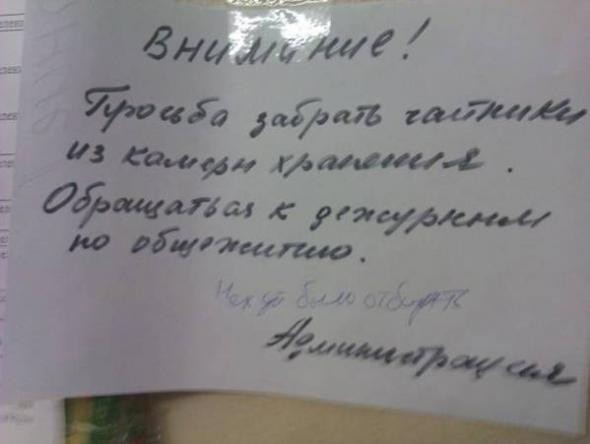 Внимание!
Просьба забрать чайники
из камеры хранения.
Обращаться к дежурным
по общежитию.
было отбирать
Администрация